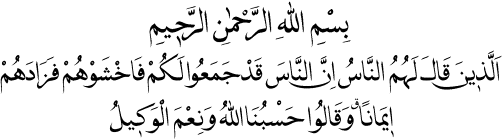 بِسْمِ اللهِ الرَّحْمٰنِ الرَّحِيمِ
اَلَّذِينَ قَالَ لَهُمُ النَّاسُ اِنَّ النَّاسَ قَدْ جَمَعُوا لَكُمْ فَاخْشَوْهُمْ فَزَادَهُمْ
اِيمَانًاۗ وَقَالُوا حَسْبُنَا اللهُ وَنِعْمَ الْوَكِيلُ